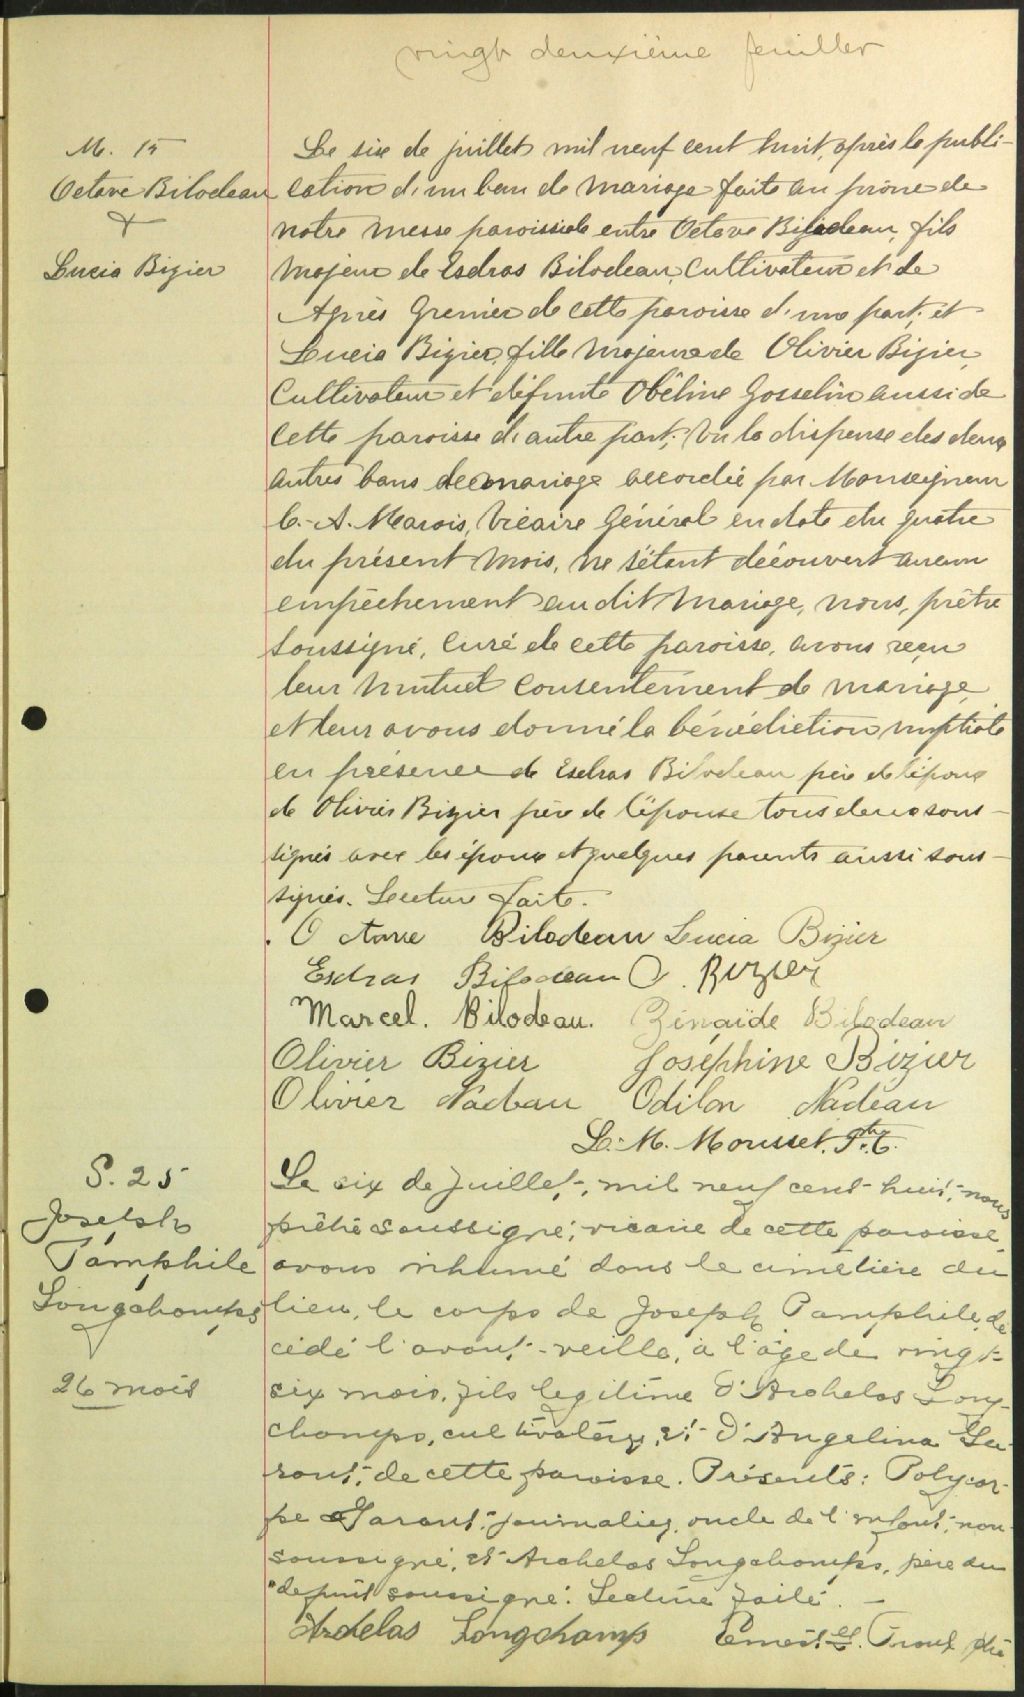 vingt deuxième feuillet
M. 15
Octave Bilodeau
&
Lucia Bizier
Le six de juillet mil neuf cent huit, après la publi-
cation d'un ban de mariage faite au prône de
notre messe paroissiale entre Octave Bilodeau, fils
majeur de Esdras Bilodeau, Cultivateur et de
Agnès Grenier de cette paroisse d'une part; et
Lucia Bizier, fille majeure de Olivier Bizier,
Cultivateur et défunte Obéline Gosselin aussi de
cette paroisse d'autre part; Vu la dispense des deux
autres bans de mariage accordée par Monseigneur
C.-A. Marois, Vicaire Général en date du quatre
du présent mois, ne s'étant découvert aucun
empêchement au dit mariage, nous, prêtre
soussigné, Curé de cette paroisse, avons reçu
leur mutuel consentement de mariage,
et leur avons donné la bénédiction nuptiale
en présence de Esdras Bilodeau père de l'époux
de Olivier Bizier père de l'épouse tous deux sous-
signés avec les époux et quelques parents aussi sous-
signés. Lecture faite.
Octave Bilodeau Lucia Bizier
Esdras Bilodeau O. Bizier
Marcel. Bilodeau. Zénaïde Bilodeau
Olivier Bizier Joséphine Bizier
Olivier Nadeau Odilon Nadeau
L.-M. Mousset. Ptre.
S. 25
Joseph
Pamphile
Longchamps
26 mois
Le six de Juillet, mil neuf cent huit, nous
prêtre soussigné, vicaire de cette paroisse,
avons inhumé dans le cimetière du
lieu, le corps de Joseph Pamphile, dé
cédé l'avant-veille, à l'âge de vingt-
six mois, fils légitime d'Archelas Long-
champs, cultivateur, et d'Angelina Ga-
rant, de cette paroisse. Présents: Polycar-
pe Garant, journalier, oncle de l'enfant, non
soussigné, et Archelas Longchamps, père du
defunt soussigné. Lecture faite. —
Ardelas Longchamp Ernest Proulx ptre